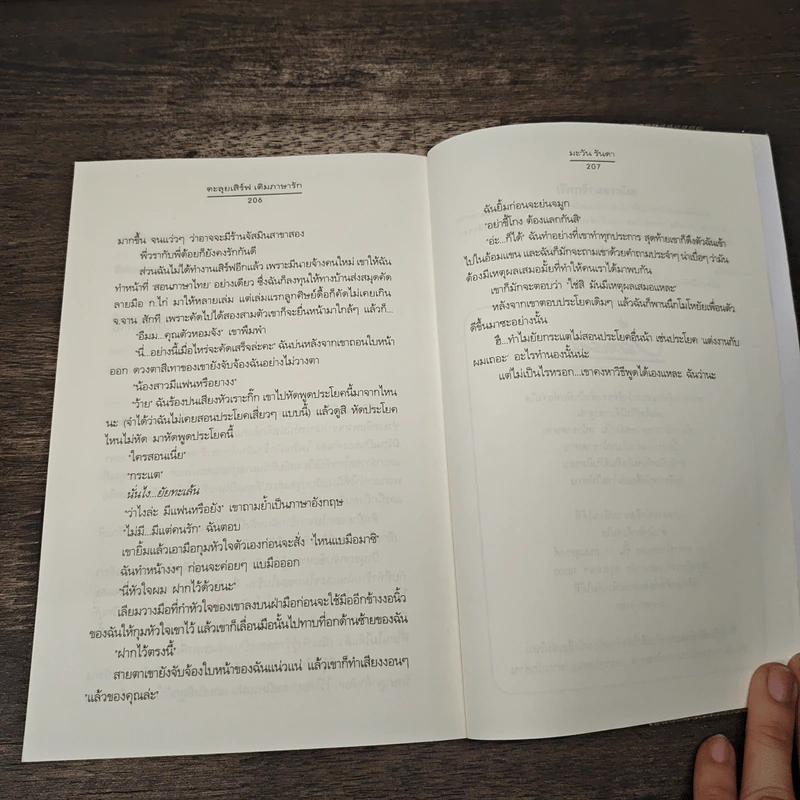 ตะลุยเสิร์ฟ เติมภาษารัก
206
มากขึ้น จนแว่วๆ ว่าอาจจะมีร้านจัสมินสาขาสอง
พี่วรากับพี่ต้อยก็ยังคงรักกันดี
ส่วนฉันไม่ได้ทำงานเสิร์ฟอีกแล้ว เพราะมีนายจ้างคนใหม่ เขาให้ฉัน
ทำหน้าที่ 'สอนภาษาไทย' อย่างเดียว ซึ่งฉันก็ลงทุนให้ทางบ้านส่งสมุดคัด
ลายมือ ก.ไก่ มาให้หลายเล่ม แต่เล่มแรกลูกศิษย์ดื้อก็คัดไม่เคยเกิน
จ.จาน สักที เพราะคัดไปได้สองสามตัวเขาก็จะยื่นหน้ามาใกล้ๆ แล้วก็...
"อืมม...คุณตัวหอมจัง" เขาพึมพำ
"นี่...อย่างนี้เมื่อไหร่จะคัดเสร็จล่ะคะ" ฉันบ่นหลังจากเขาถอนใบหน้า
ออก ดวงตาสีเทาของเขายังจับจ้องฉันอย่างไม่วางตา
"น้องสาวมีแฟนหรือยางง"
"ว้าย" ฉันร้องปนเสียงหัวเราะกิ๊ก เขาไปหัดพูดประโยคนี้มาจากไหน
นะ (จำได้ว่าฉันไม่เคยสอนประโยคเสี่ยวๆ แบบนี้) แล้วดูสิ หัดประโยค
ไหนไม่หัด มาหัดพูดประโยคนี้
"ใครสอนเนี่ย"
"กระแต"
นั่นไง...ยัยทะเล้น
"ว่าไงล่ะ มีแฟนหรือยัง" เขาถามย้ำเป็นภาษาอังกฤษ
"ไม่มี...มีแต่คนรัก" ฉันตอบ
เขายิ้มแล้วเอามือกุมหัวใจตัวเองก่อนจะสั่ง "ไหนแบมือมาซิ"
ฉันทำหน้างงๆ ก่อนจะค่อยๆ แบมือออก
"นี่หัวใจผม ฝากไว้ด้วยนะ"
เลียมวางมือที่กำหัวใจของเขาลงบนฝ่ามือก่อนจะใช้มืออีกข้างงอนิ้ว
ของฉันให้กุมหัวใจเขาไว้ แล้วเขาก็เลื่อนมือนั้นไปทาบที่อกด้านซ้ายของฉัน
"ฝากไว้ตรงนี้"
สายตาเขายังจับจ้องใบหน้าของฉันแน่วแน่ แล้วเขาก็ทำเสียงงอนๆ
"แล้วของคุณล่ะ"
มะวัน รันดา
207
ฉันยิ้มก่อนจะย่นจมูก
"อย่าขี้โกง ต้องแลกกันสิ"
"อ่ะ...ก็ได้" ฉันทำอย่างที่เขาทำทุกประการ สุดท้ายเขาก็ดึงตัวฉันเข้า
ไปในอ้อมแขน และฉันก็มักจะถามเขาด้วยคำถามประจำๆ น่าเบื่อๆ ว่ามัน
ต้องมีเหตุผลเสมอมั้ยที่ทำให้คนเราได้มาพบกัน
เขาก็มักจะตอบว่า "ใช่สิ มันมีเหตุผลเสมอแหละ"
หลังจากเขาตอบประโยคเดิมๆ แล้วฉันก็พานนึกโมโหยัยเพื่อนตัว
ดีขึ้นมาซะอย่างนั้น
ฮึ...ทำไมยัยกระแตไม่สอนประโยคอื่นน้า เช่นประโยค 'แต่งงานกับ
ผมเถอะ' อะไรทำนองนั้นน่ะ
แต่ไม่เป็นไรหรอก...เขาคงหาวิธีพูดได้เองแหละ ฉันว่านะ